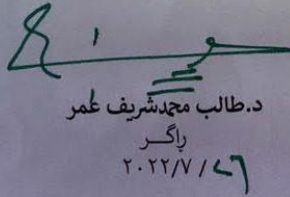 د.طالب محمدشریف عمر
ڕاگــر
٢٠٢٢/٧/٢٦